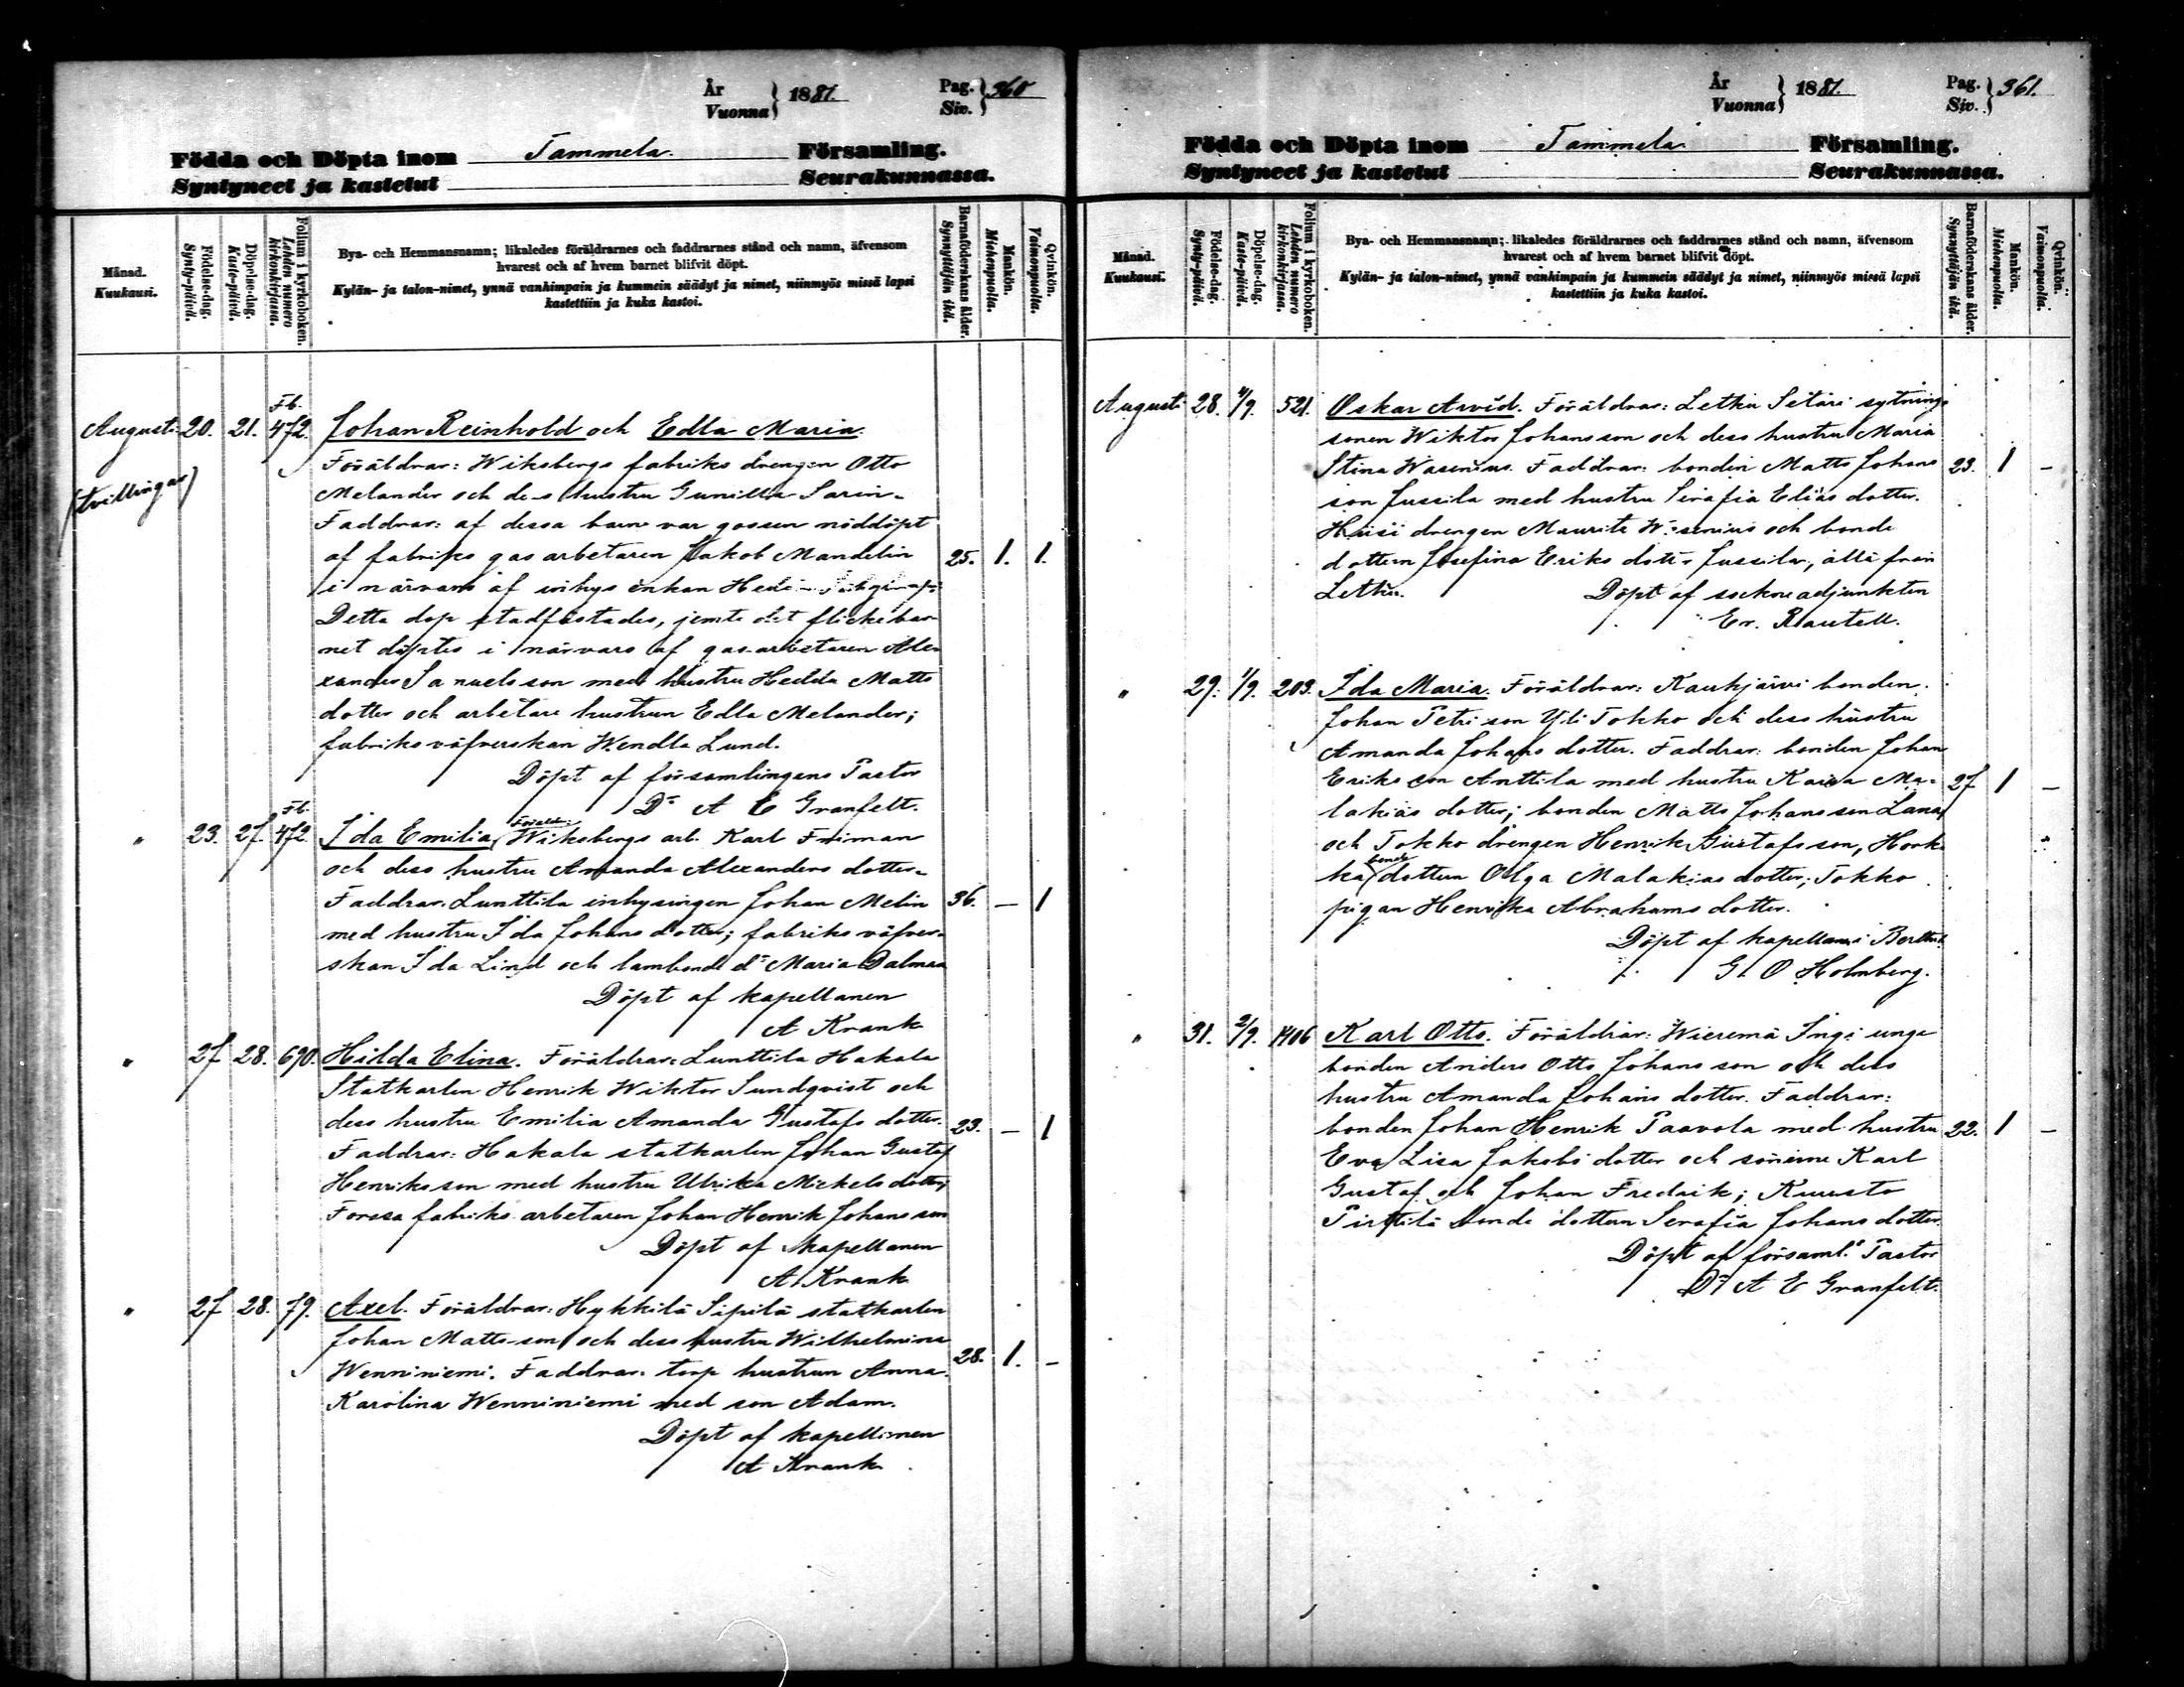 År
Vuonna } 1881.
Pag.
Siv. } 360
Födda och Döpta inom Tammela. Församling.
Syntyneet ja kastetut Seurakunnassa.
Månad.
Kuukausi.
Födelse-dag.
Synty-päivä.
Döpelse-dag.
Kaste-päivä.
Folium i kyrkoboken.
Lehden numero kirkonkirjassa.
Bya- och Hemmansnamn; likaledes föräldrarnes och faddrarnes stånd och namn, äfvensom
hvarest och af hvem barnet blifvit döpt.
Kylän- ja talon-nimet, ynnä vanhimpain ja kummein säädyt ja nimet, niinmyös missä lapsi
kastettiin ja kuka kastoi.
Barnaföderskans ålder.
Synnyttäjän ikä.
Mankön.
Miehenpuolta.
Qvinkön.
Vaimonpuolta.
Fb.
Augusti 20. 21. 472. Johan Reinhold och Edla Maria.
(tvillingar)
Föräldrar: Wiksbergs fabriks drengen Otto
Melander och dess hustru Gunilla Sarin.
Faddrar: af dessa barn var gossen nöddöpt
af fabriks gas arbetaren Jakob Mandelin 25. 1. 1.
i närvaro af inhys enkan
Detta dop stadfästades, jemte det flickebar
net döptes i närvaro af gas arbetaren Ale
xander Samuels son med hustru Hedda Matts
dotter och arbetare hustrun Edla Melander;
fabriks väfverskan Wendla Lund.
Döpt af församlingens Pastor
Dr A E Granfelt.
Fb.
" 23. 27. 472. Ida Emilia. Föräldr: Wiksbergs arb. Karl Friman
och dess hustru Amanda Alexanders dotter.
Faddrar. Lunttila inhysingen Johan Melin 36. — 1
med hustru Ida Johans dotter; fabriks väfver
skan Ida Lind och lambonde dr Maria Dalman
Döpt af kapellanen
A Krank
" 27 28. 690. Hilda Elina. Föräldrar: Lunttila Hakala
Statkarlen Henrik Wiktor Sundqvist och
dess hustru Emilia Amanda Gustafs dotter. 23. — 1
Faddrar: Hakala statkarlen Johan Gustaf
Henriks son med hustru Ulrika Mickels dotter;
Forssa fabriks arbetaren Johan Henrik Johans son
Döpt af kapellanen
A Krank
" 27 28. 79. Axel. Föräldrar: Hykkilä Sipilä statkarlen
Johan Matts son och dess hustru Wilhelmina
Wenniniemi. Faddrar: torp hustrun Anna 28. 1. —
Karolina Wenniniemi med son Adam.
Döpt af kapellanen
A Krank.
År
Vuonna } 1881.
Pag.
Siv. } 361.
Födda och Döpta inom Tammela Församling.
Syntyneet ja kastetut Seurakunnassa.
Månad.
Kuukausi.
Födelse-dag.
Synty-päivä.
Döpelse-dag.
Kaste-päivä.
Folium i kyrkoboken.
Lehden numero kirkonkirjassa.
Bya- och Hemmansnamn; likaledes föräldrarnes och faddrarnes stånd och namn, äfvensom
hvarest och af hvem barnet blifvit döpt.
Kylän- ja talon-nimet, ynnä vanhimpain ja kummein säädyt ja nimet, niinmyös missä lapsi
kastettiin ja kuka kastoi.
Barnaföderskans ålder.
Synnyttäjän ikä.
Mankön.
Miehenpuolta.
Qvinkön.
Vaimonpuolta.
Augusti 28. 4/9. 521. Oskar Arvid. Föräldrar: Letku Setäri sytnings
sonen Wiktor Johans son och dess hustru Maria
Stina Wasenius. Faddrar: bonden Matts Johans 23. 1 —
son Jussila med hustru Serafia Elias dotter.
drengen Maurits Wasenius och bonde
dottern Josefina Eriks dotter Jussila, alla från
Letku. Döpt af sockneadjunkten
Er. Rautell.
" 29. 1/9. 203. Ida Maria. Föräldrar: Kaukjärvi bonden
Johan Petri son Yli Tokko och dess hustru
Amanda Johans dotter. Faddrar: bonden Johan
Eriks son Anttila med hustru Kaisa Ma- 27 1 —
lakias dotter; bonden Matts Johans son Lana,
och Tokko drengen Henrik Gustafs son, Hork
ka bonde dottern Olga Malakias dotter; Tokko
pigan Henrika Abrahams dotter.
Döpt af kapellanen i
G. O Holmberg.
" 31. 2/9. 1406 Karl Otto. Föräldrar: Wieremä Ingi unge
bonden Anders Otto Johans son och dess
hustru Amanda Johans dotter. Faddrar:
bonden Johan Henrik Paavola med hustru 22. 1 —
Eva Lisa Jakobs dotter och sönerne Karl
Gustaf och Johan Fredrik; Kuusto
Pirttilä bonde dottern Serafia Johans dotter.
Döpt af församl.s Pastor
Dr A E Granfelt.